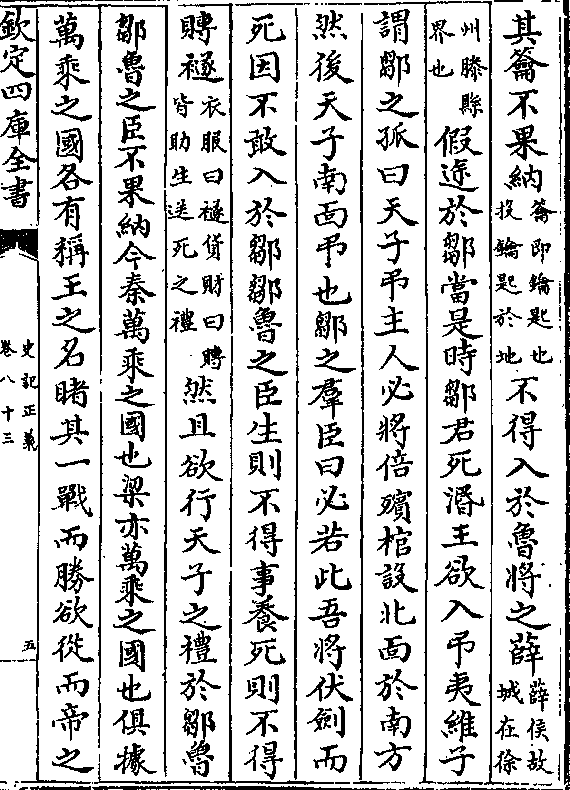 其籥不果納籥即鑰匙也投鑰匙於地不得入於魯將之薛薛侯故城在徐
州滕縣界也假途於鄒當是時鄒君死湣王欲入弔夷維子
謂鄒之孤曰天子弔主人必將倍殯棺設北面於南方
然後天子南面弔也鄒之羣臣曰必若此吾將伏劍而
死因不敢入於鄒鄒魯之臣生則不得事養死則不得
賻襚衣服曰襚貨財曰賻皆助生送死之禮然且欲行天子之禮於鄒魯
鄒魯之臣不果納今秦萬乘之國也梁亦萬乘之國也俱據
萬乘之國各有稱王之名睹其一戰而勝欲從而帝之
欽定四庫全書
史記正義
卷八十三
五